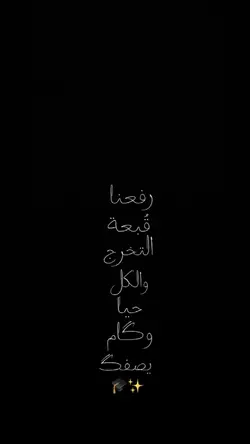 رفعنا
قُبعة
التخرج
والكل
حيا
وگام
يصفگ
🎓✨